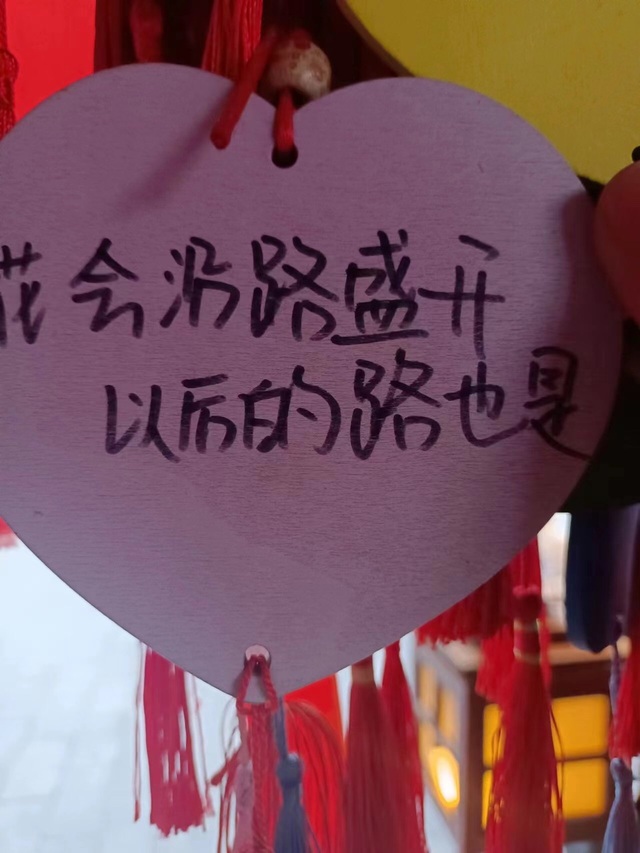 花会沿路盛开
以后的路也是